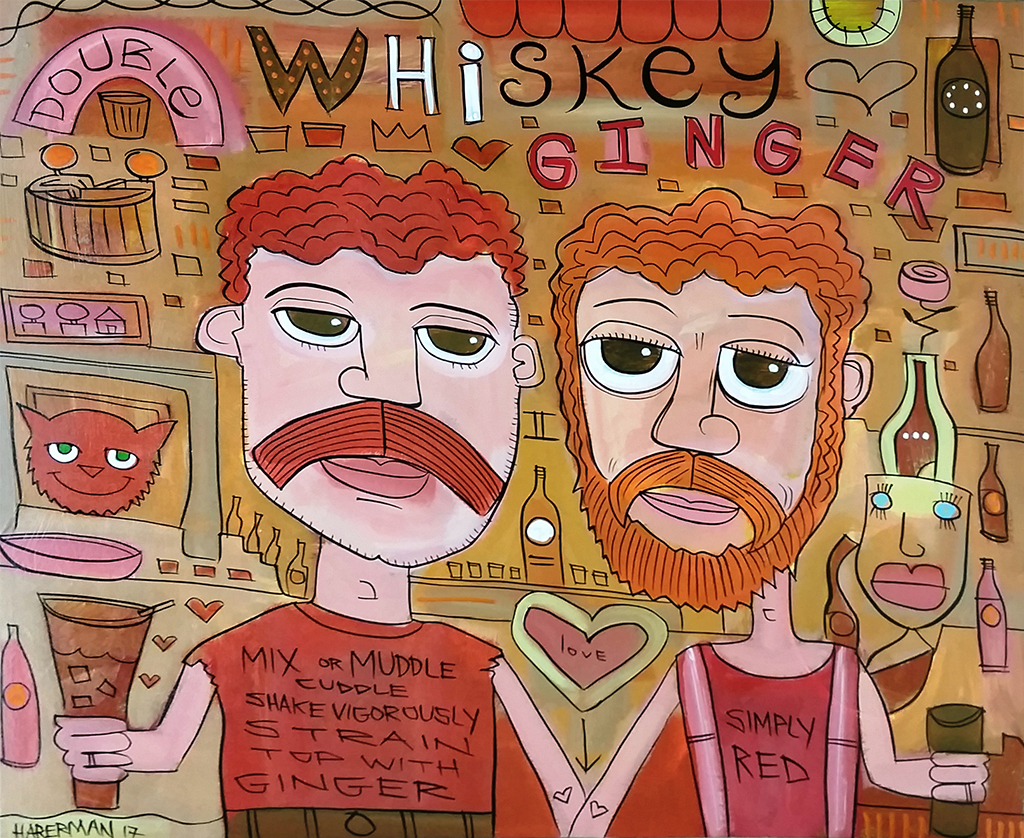 DOUBLe
WHiSKeY
GINGER
love
MIX OR MUDDLE
CUDDLE
SHAKE VIGOROUSLY
STRAIN
TOP WITH
GINGER
SIMPLY
RED
HARERMAN 17